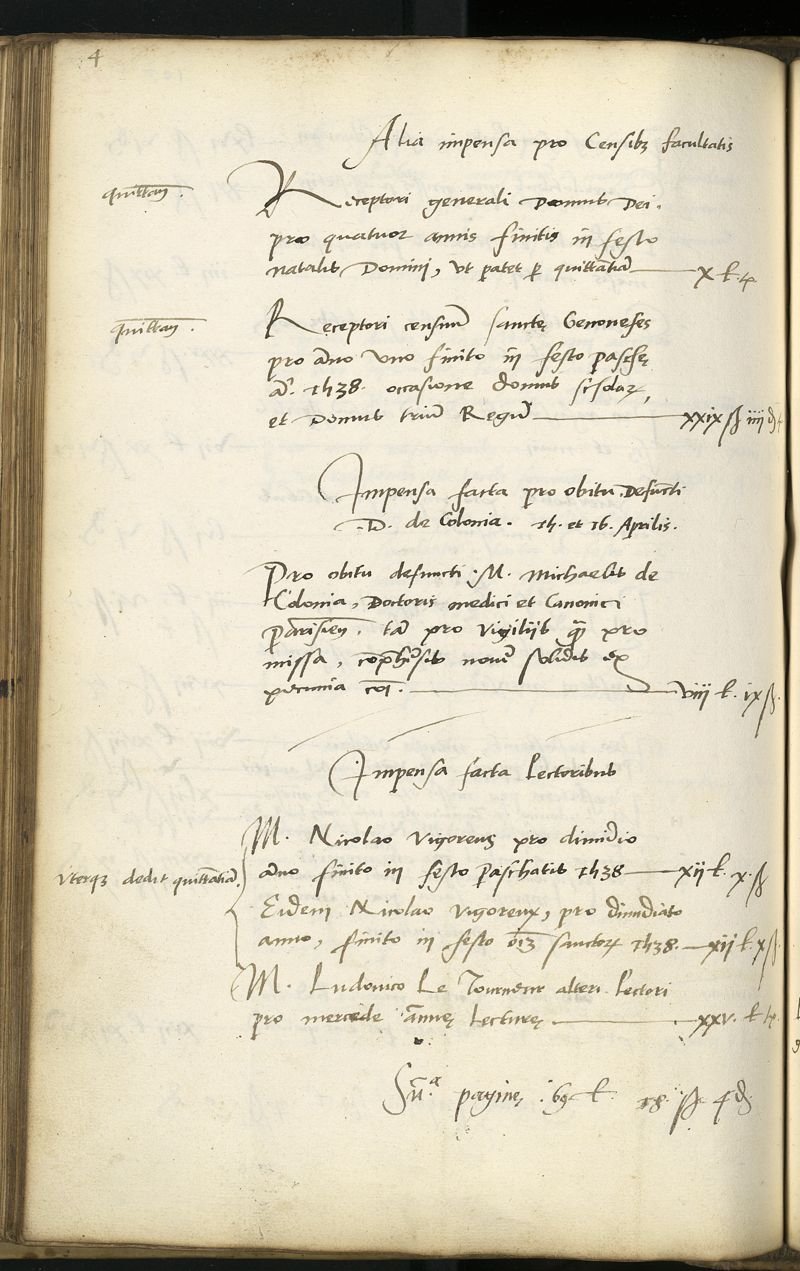 4
Alia impensa pro Censibꝫ facultatis
quittan̄.
Receptori generali Domus Dei.
pro quatuor annis finitis in festo
natalis Domini, ut patet p̲ quittātiā — X l. t̶
quittan̄.
Receptori censuū sanctę Genovefes
pro āno uno finito in festo paschę
an̄. 1538. occasione domus scholaꝝ,
et Domus triū Regū — xxix ß iiij d t
Impensa facta pro obitu Defuncti
.D. de Colonia. 15. et 16. Aprilis.
Pro obitu defuncti .M. Michaelis de
Colonia, Doctoris medici et Canonici
Parisien̄. tā pro vigiliis quā pro
missa, cōprehēsis novē solidis ex
pecunia cōi. — viij l. ix ß.
Impensa facta Lectoribus
M. Nicolao Vigoreus pro dimidio
āno finito in festo paschatis 1538 — xij l. x. ß
Uterqꝫ dedit quittātiā.
Eidem Nicolao Vigoreux, pro dimidiato
anno, finito in festo oīm sanctoꝝ 1538. — xij l. x ß.
M. Ludovico Le Tourneur alteri lectori
pro mercede ānuę lecturę — xxv. l. t.
Sūᵃ paginę . 69 l. 18 ß 4 d.